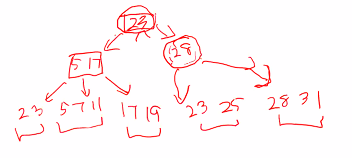 23
5 17
28
2 3 5 7 11 17 19 23 25 28 31